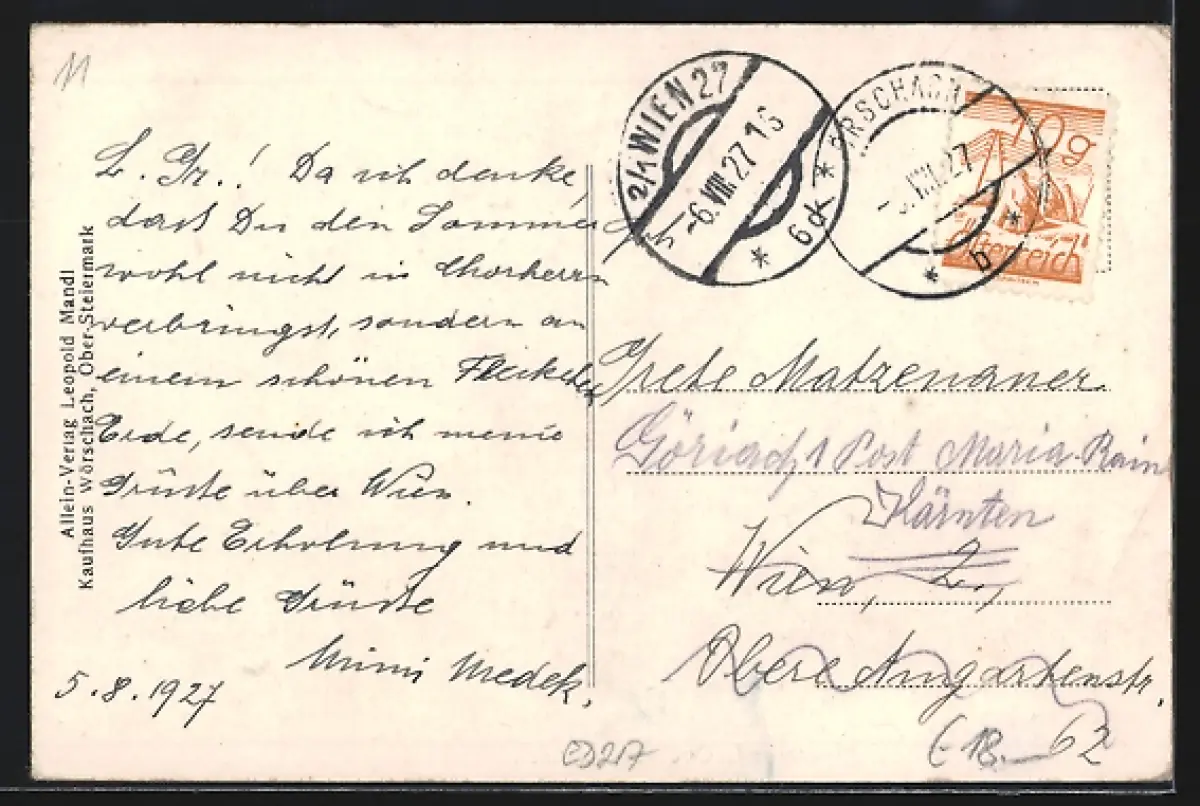 11
L. Gr.! Da ich denke,
dass Du den Sommer
wohl nicht in Chorherrn
verbringst, sondern an
einem schönen Fleckchen
Erde, sende ich meine
Grüsse über Wien.
Gute Erholung und
liebe Grüsse
Mimi Medek.
5.8.1927
Allein-Verlag Leopold Mandl
Kaufhaus Wörschach, Ober-Steiermark
2/1 WIEN 27
-6.VIII.27 16
* 6d *
ÖRSCHACH
VIII.27
* b *
10g
Österreich
Grete Matzenauer
Göriach 1 Post Maria-Rain
Kärnten
Wien, 2.,
Obere Augartenstr.
62